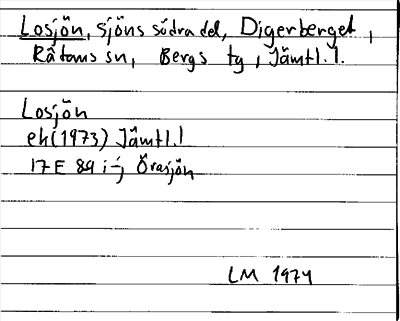 Losjön, sjöns södra del, Digerberget,
Råtans sn, Bergs tg, Jämtl. l.
Losjön
ek (1973) Jämtl. l
17 E 89 i-j Örasjön
LM 1974